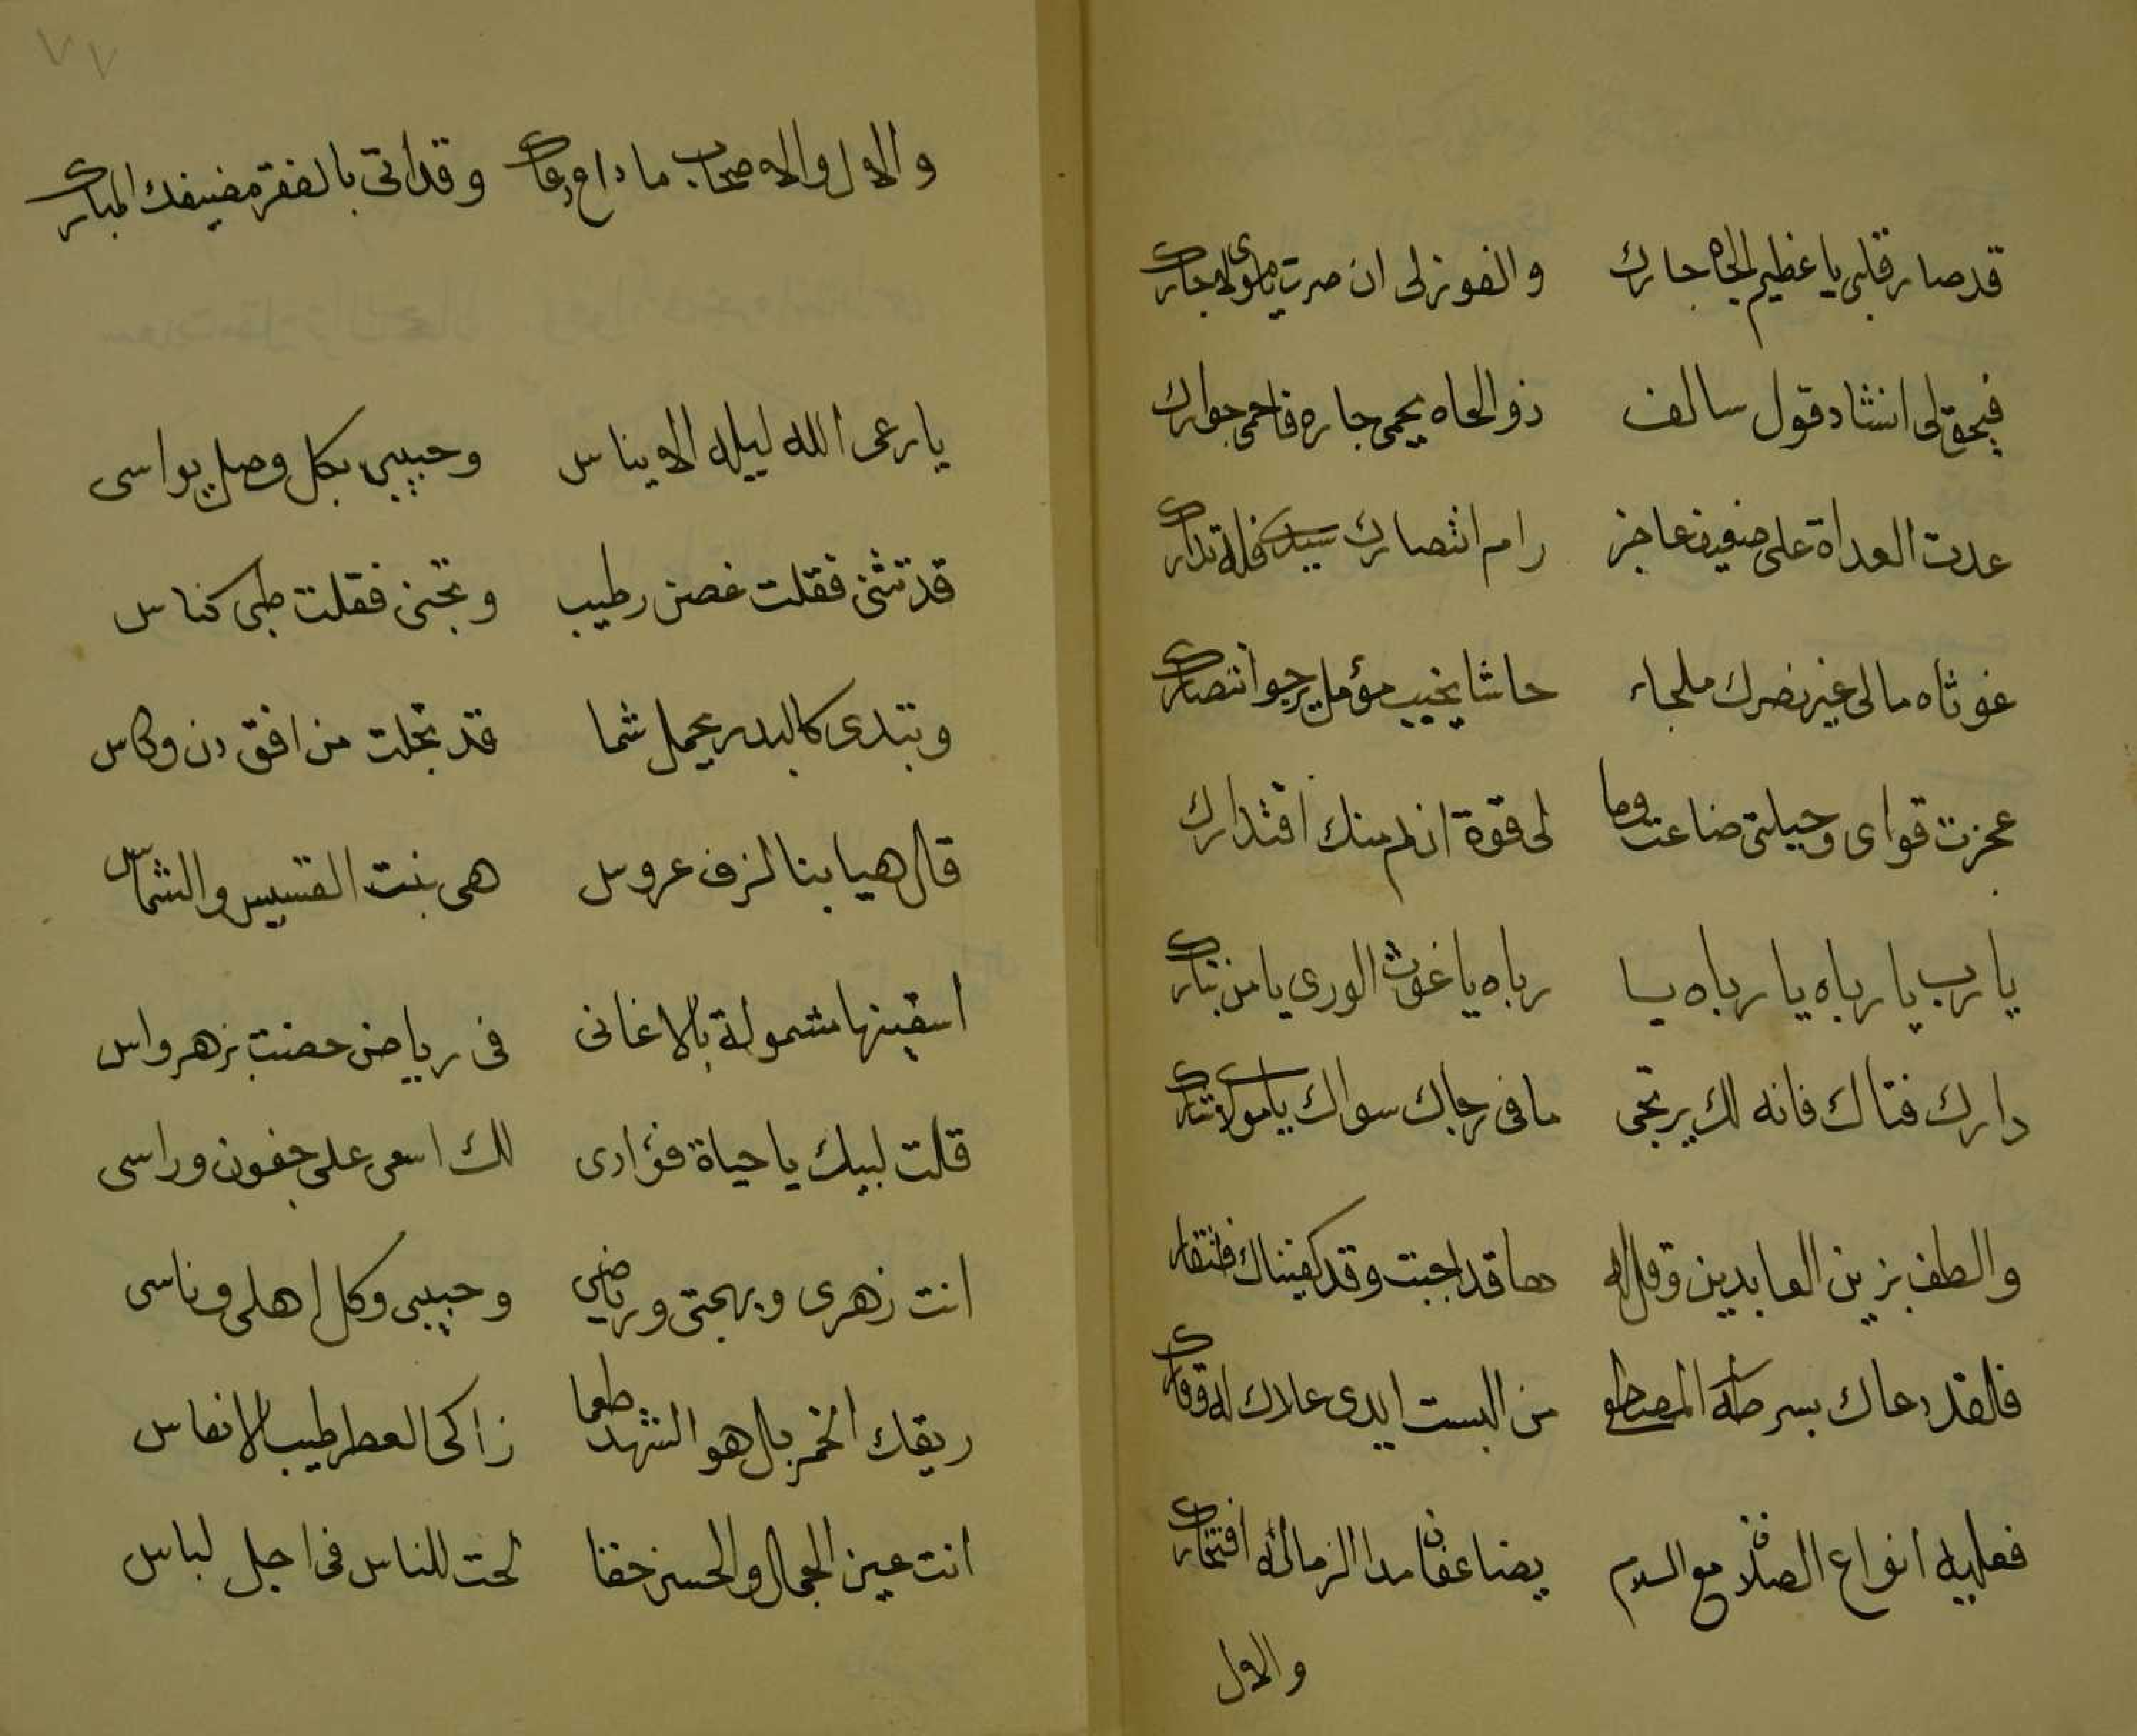 قد صار قلبى يا عظيم الجاه جارك والفوز لى ان صرت يا مولاى جارك
فيحق لى انشاد قول سالف ذو الجاه يحمى جاره فاحمى جوارك
عدت العداة على ضعيف عاجز رام انتصارك سيدى فله تدارك
غوثاه مالى غير نصرك ملجاء حاشا يخيب مؤمل يرجو انتصارك
عجزت قواى وحيلتى ضاعت وما لى قوة ان لم منك اقتدارك
يا رب يا رباه يا رباه يا رباه يا غوث الورى يا من تبارك
دارك فتاك فانه لك يرتجى ما فى رجاك سواك يا مولاى
والطف بزين العابدين وقل له ها قد اجبت وقد كفيناك
فلقد دعاك بسر طه المصطفى من البست ايدى علاك له وقارك
فعليه انواع الصلاة مع السلام يضاعفان مدا الزمان له افتخارك
والال
٧٧
والال والاصحاب ما داع دعاك وقد اتى بالفقر مضيفك المبارك
يا رعى الله ليلة الايناس وحبيبى بكل وصل يواسى
قد تثنى فقلت غصن رطيب وتجنى فقلت ظبى كناس
وتبدى كالبدر يحمل شمسا قد تجلت من افق دن وكاس
قال هيا بنا لزف عروس هى بنت القسيس والشماس
اسقينها مشمولة بالاغانى فى رياض حضنت بزهر واس
قلت لبيك يا حياة فؤادى لك اسعى على جفون وراسى
انت زهرى وبهجتى ورياضى وحبيبى وكل اهلى وناسى
ريقك الخمر بل هو الشهد طعما زاكى العطر طيب الانفاس
انت عين الجمال والحسن حقا لحت للناس فى اجل لباس